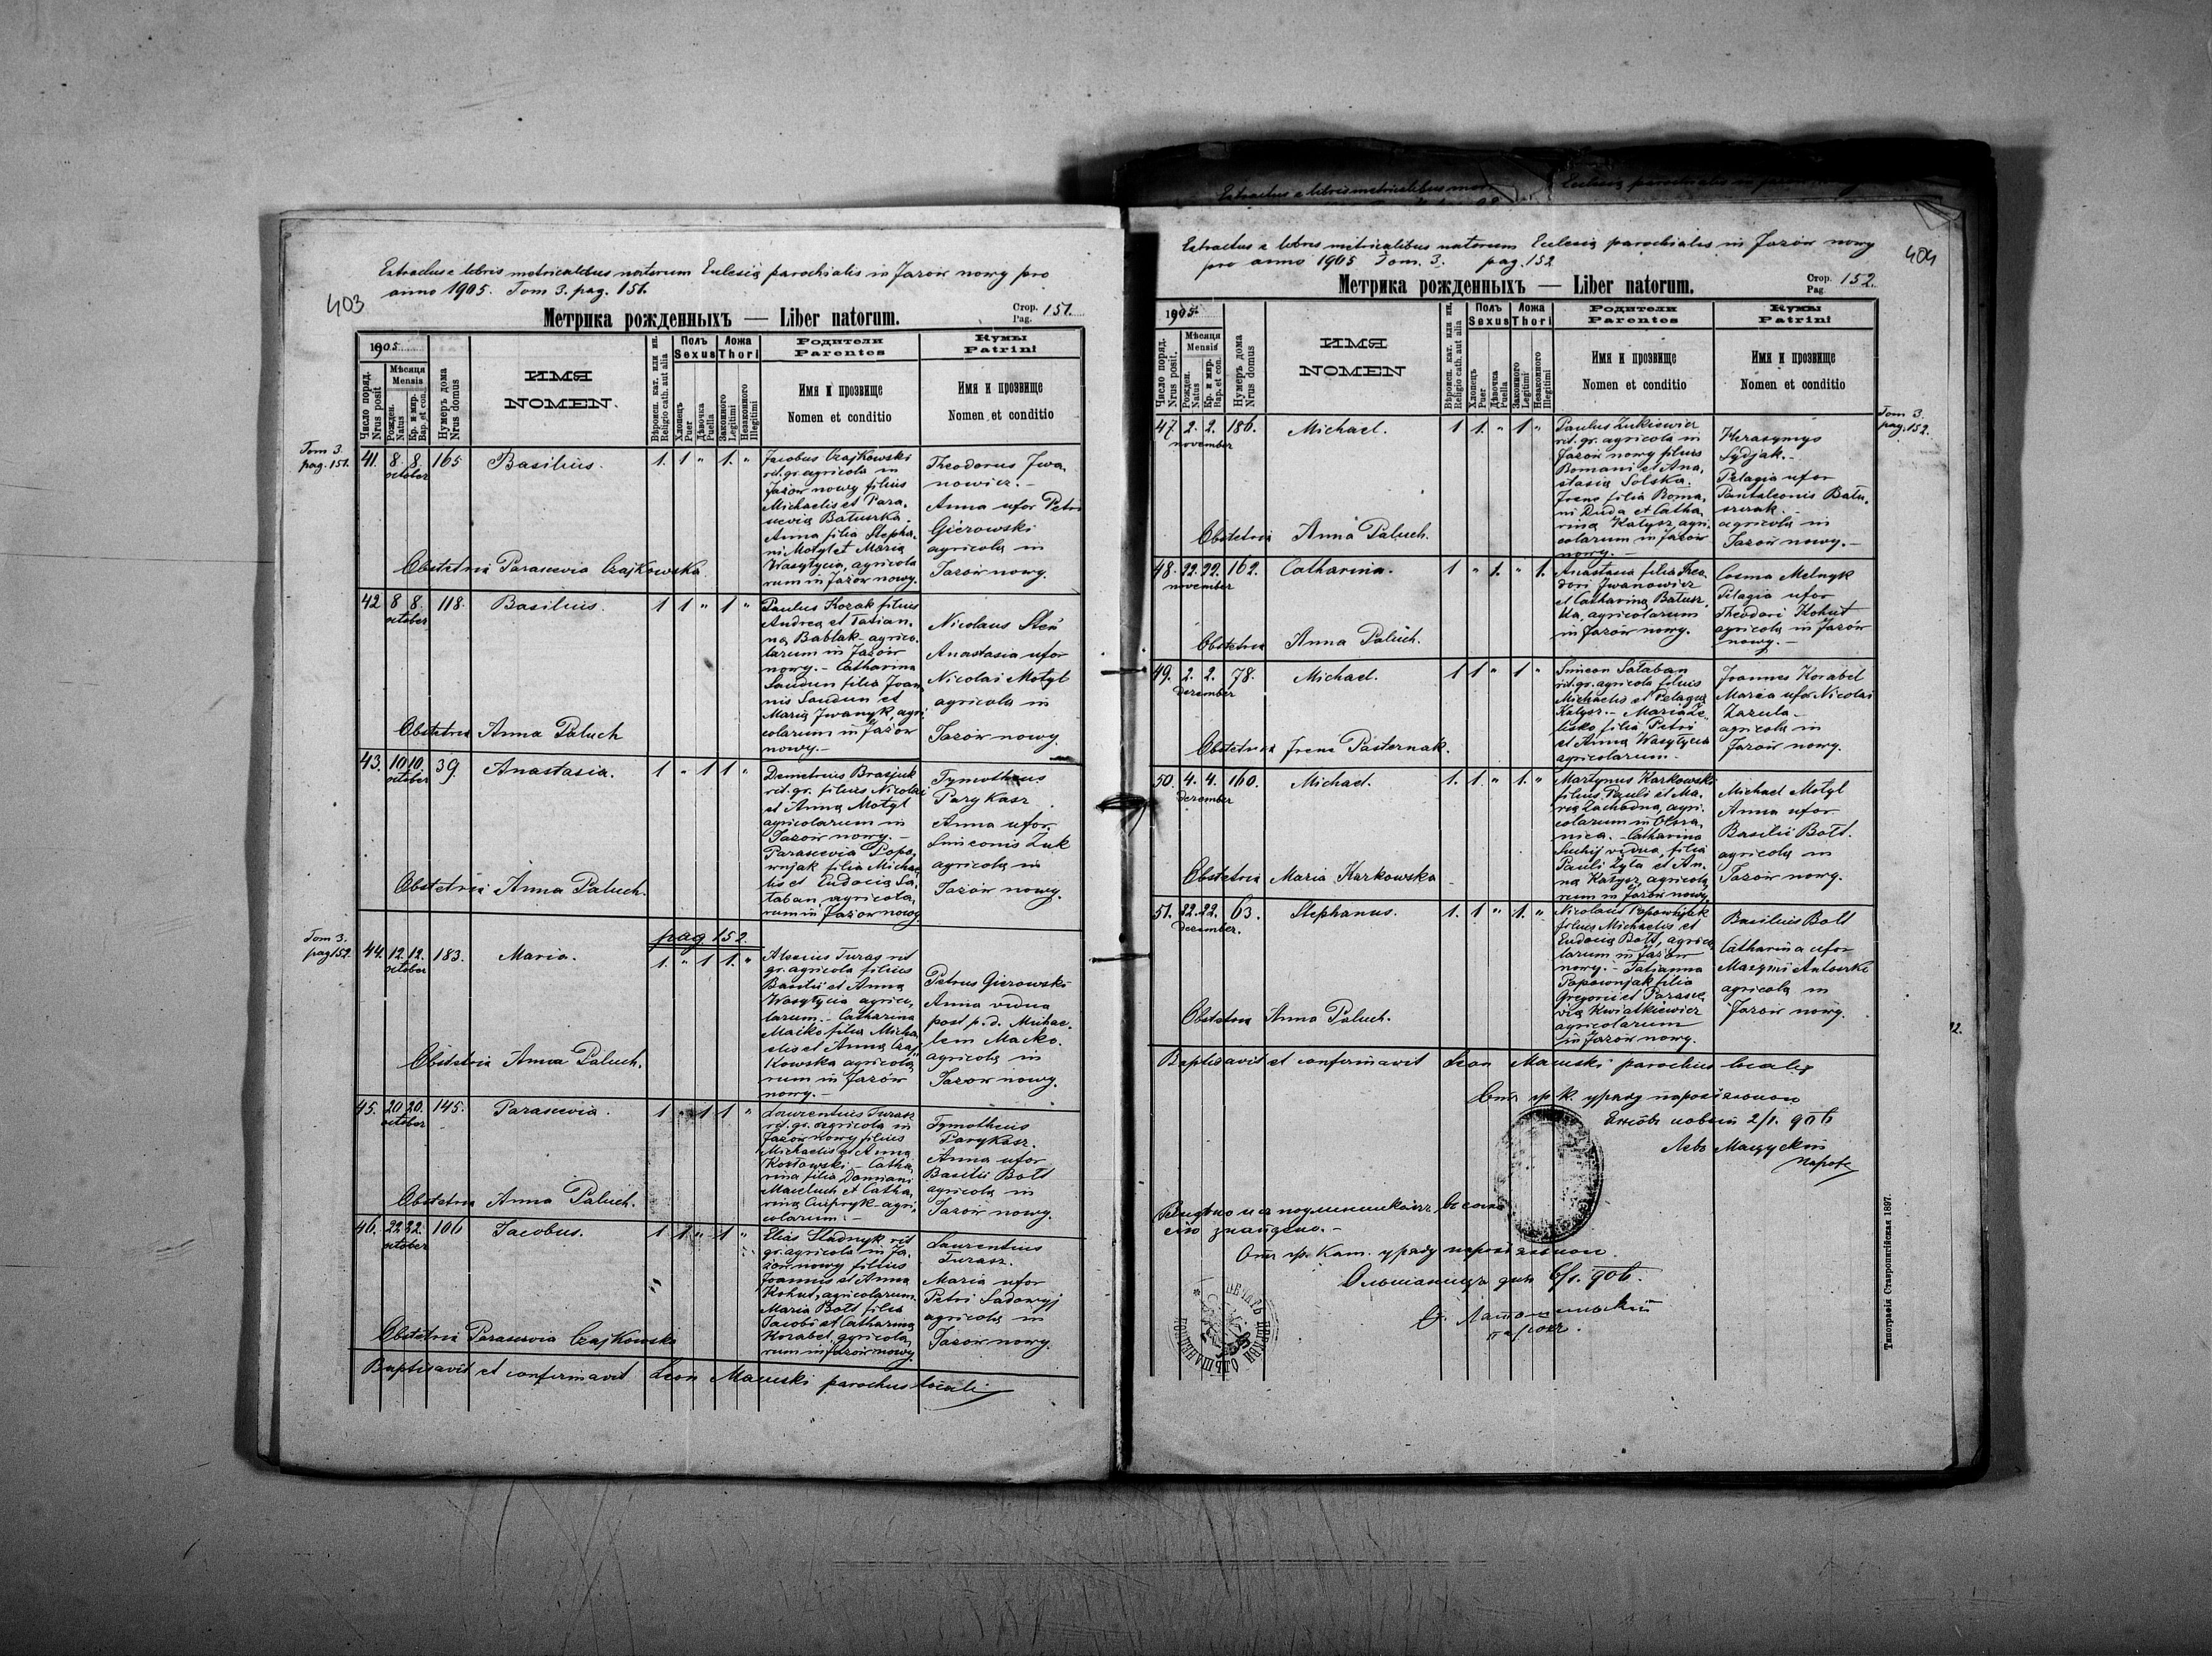 403
Extractus e libris metricalibus natorum Eclesia parochialis in Jazów nowy pro
anno 1905. Tom 3. pag. 151.
Метрика рожденныхъ — Liber natorum.
Стор. Pag. 151.
1905
Число поряд. Nrus posit
Мѣсяця Mensis
Рожден. Natus
Кр. и мир. Bap. et con.
Нумеръ дома Nrus domus
ИМЯ
NOMEN.
Вѣроисп. кат. или ин. Religio cath. aut alia
Полъ Sexus
Хлопецъ Puer
Дѣвочка Puella
Ложа Thori
Законного Legitimi
Незаконного Illegitimi
Родители
Parentes
Имя и прозвище
Nomen et conditio
Кумы
Patrini
Имя и прозвище
Nomen et conditio
Tom 3.
pag. 151.
41. 8. 8. october 165 Basilius. 1. 1 " 1. "
Jacobus Czajkowski
rit. gr. agricola in
Jazów nowy filius
Michaelis et Para-
scevia Batuszka.
Anna filia Stepha-
ni Motyl et Maria
Wasylycia, agricola
rum in Jazów nowy.
Theodorus Iwa-
nowicz.-
Anna uxor Petri
Gierowski
agricola in
Jazów nowy.
Obstetrix Parascevia Czajkowska
42 8 8. october 118. Basilius. 1 1 " 1 "
Paulus Kozak filius
Andrea et Tatian-
na Bablak agrico-
larum in Jazów
nowy.- Catharina
Saudun filia Joan
nis Saudun et
Maria Iwanyk, agri
colarum in Jazów
nowy.-
Nicolaus Steń
Anastasia uxor
Nicolai Motyl
agricola in
Jazów nowy.
Obstetrix Anna Paluch
43. 10 10. october 39. Anastasia. 1 " 1 1 "
Demetrius Brasjuk
rit. gr. filius Nicolai
et Anna Motyl
agricolarum in
Jazów nowy.-
Parascevia Popo-
wnjak filia Michae
lis et Eudocia Sa-
taban, agricola-
rum in Jazow nowy
Tymotheus
Parykasz
Anna uxor
Simeonis Zuk
agricola in
Jazów nowy.
Obstetrix Anna Paluch.
pag 152.
Tom 3.
pag 152.
44. 12. 12. october 183. Maria. 1. " 1 1. "
Alexius Turas rit
gr. agricola filius
Basilii et Anna
Wasylycia agrico-
larum.- Catharina
Maćko filia Micha
elis et Anna Czaj-
kowska agricola
rum in Jazów
nowy.-
Petrus Gierowski
Anna vidua
post p. d. Michae-
lem Macko.
agricola in
Jazow nowy.
Obstetrix Anna Paluch.
45. 20 20. october 145. Parascevia. 1 " 1 1 "
Laurentius Turasz
rit. gr. agricola in
Jazów nowy filius
Michaelis et Anna
Kozłowski.- Catha
rina filia Damiani
Maciluch et Catha-
rina agri-
colarum.-
Tymotheus
Parykasz.
Anna uxor
Basilii Bołt
agricola in
Jazów nowy.
Obstetrix Anna Paluch.
46. 22 22. october 106 Jacobus. 1 1 " 1 "
Elias Sladnyk rit
gr. agricola in Ja-
zów nowy filius
Joannis et Anna
Kohut, agricolarum.
Maria Bołt filia
Jacobi et Catharina
Korabel agricola
rum in Jazów nowy.
Laurentius
Turasz.
Maria uxor
Petri Sadowyj
agricola in
Jazow nowy.
Obstetrix Parascevia Czajkowska
Baptisavit et confirmavit Leon Macuski parochus localis
404
Extractus e libris metricalibus natorum Eclesia parochialis in Jazów nowy
pro anno 1905 Tom. 3. pag. 152
Метрика рожденныхъ — Liber natorum.
Стор. Pag. 152.
1905.
Число поряд. Nrus posit.
Мѣсяця Mensis
Рожден. Natus
Кр. и мир. Bap. et con.
Нумеръ дома Nrus domus
ИМЯ
NOMEN
Вѣроисп. кат. или ин. Religio cath. aut alia
Полъ Sexus
Хлопецъ Puer
Дѣвочка Puella
Ложа Thori
Законного Legitimi
Незаконного Illegitimi
Родители
Parentes
Имя и прозвище
Nomen et conditio
Кумы
Patrini
Имя и прозвище
Nomen et conditio
Tom 3.
pag. 152.
47. 2. 2. november 186. Michael. 1 1. " 1 "
Paulus Łukiewicz
rit. gr. agricola in
Jazów nowy filius
Romani et Ana-
stasia Solska.
Irene filia Roma-
ni Duda et Catha-
rina Katysz, agri-
colarum in Jazów
nowy.-
Herasymys
Sydjak.-
Pelagia uxor
Pantaleonis Batu-
szczak.-
agricola in
Jazów nowy.-
Obstetrix Anna Paluch.
48. 22. 22. november 162. Catharina. 1 " 1. " 1.
Anastasia filia Theo
dori Iwanowicz
et Catharina Batusz
ka, agricolarum
in Jazów nowy.
Cosma Melnyk
Pelagia uxor
Theodori Kohut
agricola in Jazów
nowy.-
Obstetrix Anna Paluch.
49. 2. 2. dezember 78. Michael. 1 1 " 1 "
Simeon Sataban
rit. gr. agricola filius
Michaelis et Pelagia
Katysz.- Maria Ze-
lisko filia Petri
et Anna Wasylycia
agricolarum.-
Joannes Korabel
Maria uxor Nicolai
Zazula-
agricola in
Jazów nowy.
Obstetrix Irene Pasternak.
50. 4. 4. dezember 160. Michael. 1. 1. " 1. "
Martynus Karkowski
filius Pauli et Ma-
ria Zachodna, agri-
colarum in
nica.- Catharina
Suchij vidua, filia
Pauli Żyła et An-
na Katysz, agricola
rum in Jazów nowy.
Michael Motyl
Anna uxor
Basilii Bołt.
agricola in
Jazów nowy.
Obstetrix Maria Karkowska
51. 22. 22. dezember. 63. Stephanus. 1. 1 " 1. "
Nicolaus Popownjak
filius Michaelis et
Eudocia Bołt, agrico-
larum in Jazów
nowy.- Tatianna
Popownjak filia
Gregorii et Parasce-
via Kwiatkiewicz
agricolarum
in Jazów nowy.
Basilius Bołt
Catharina uxor
Maxymi Antoszko
agricola in
Jazów nowy.
Obstetrix Anna Paluch.
Baptisavit et confirmavit Leon Macuski parochus localis
Отъ гр. к. уряду парохіяльного
Язовъ новый 2/1. 906
Левъ Мацускій
парохъ
знайдено.-
Отъ гр. кат. уряду парохіяльного.
Ольшаниця дня 6/1. 906.
парохъ.
ПЕЧАТЬ ЦЕРКВИ
Типографія Ставропигійская 1897.